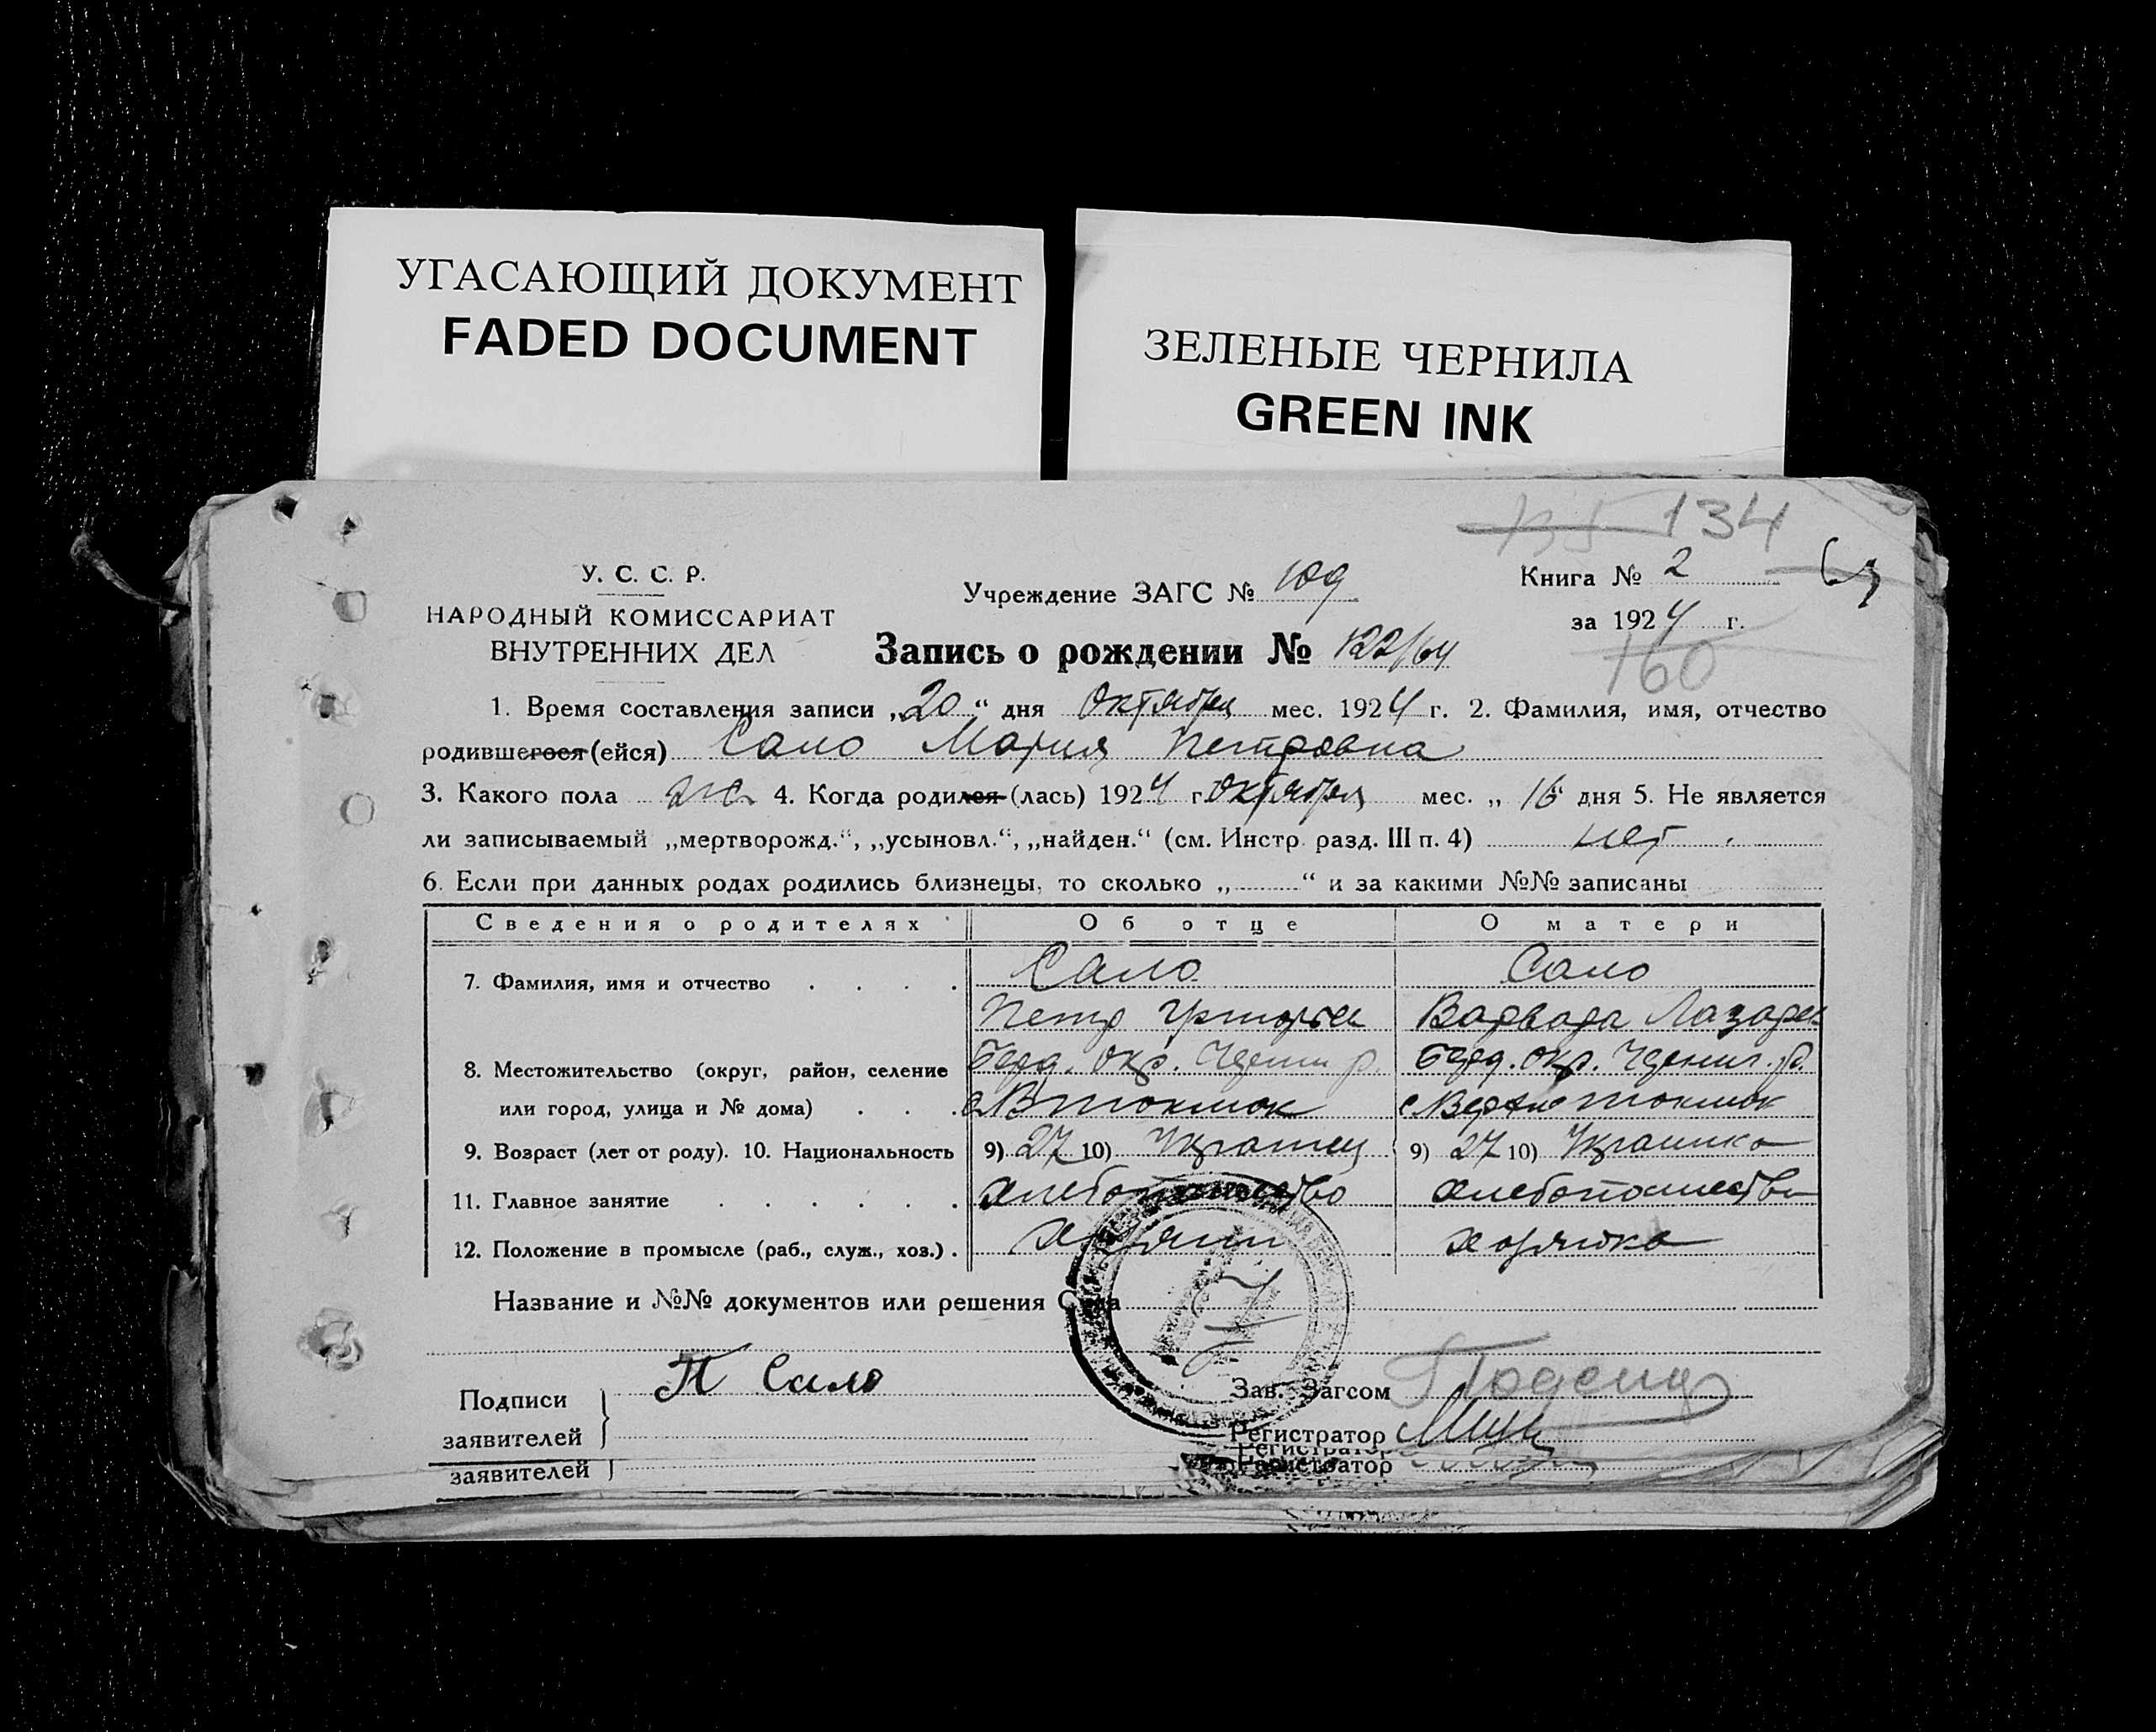 УГАСАЮЩИЙ ДОКУМЕНТ
FADED DOCUMENT
ЗЕЛЕНЫЕ ЧЕРНИЛА
GREEN INK
134
У. С. С. Р.
НАРОДНЫЙ КОМИССАРИАТ
ВНУТРЕННИХ ДЕЛ
Учреждение ЗАГС № 109
Книга № 2
за 1924 г.
160
Запись о рождении № 122/64
1. Время составления записи „20“ дня Октября мес. 1924 г. 2. Фамилия, имя, отчество
родившегося (ейся) Сало Мария Петровна
3. Какого пола ж. 4. Когда родился (лась) 1924 г. Октября мес. „16“ дня 5. Не является
ли записываемый „мертворожд.“, „усыновл.“, „найден.“ (см. Инстр. разд. III п. 4) нет
6. Если при данных родах родились близнецы, то сколько „ “ и за какими №№ записаны
Сведения о родителях Об отце О матери
7. Фамилия, имя и отчество Сало Сало
Петр Варвара Лазарев
8. Местожительство (округ, район, селение Берд. Окр. р. Берд. Окр. р.
или город, улица и № дома) с В токмак с Верхне токмак
9. Возраст (лет от роду). 10. Национальность 9) 27 10) Украинец 9) 27 10) Украинка
11. Главное занятие хлебопашество хлебопашество
12. Положение в промысле (раб., служ., хоз.)
Название и №№ документов или решения Суда
Подписи
заявителей
П Сало
Зав. Загсом
Регистратор
заявителей
Регистратор
Регистратор